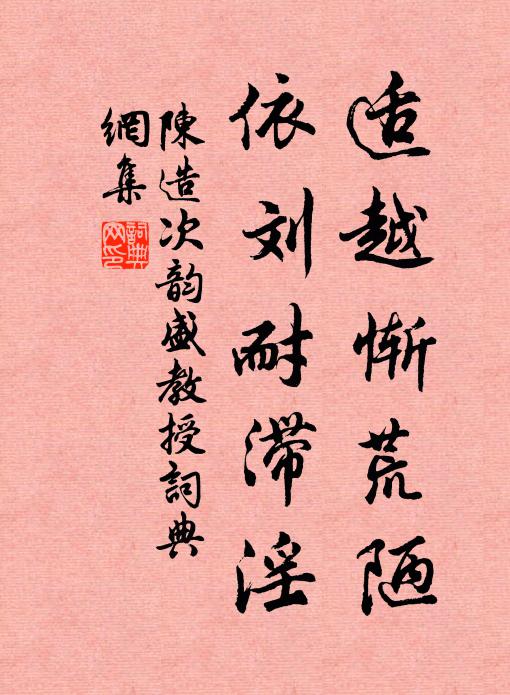 适越惭荒陋
依刘耐滞淫
陳造次韵盛教授詞典
網集
詞典網印